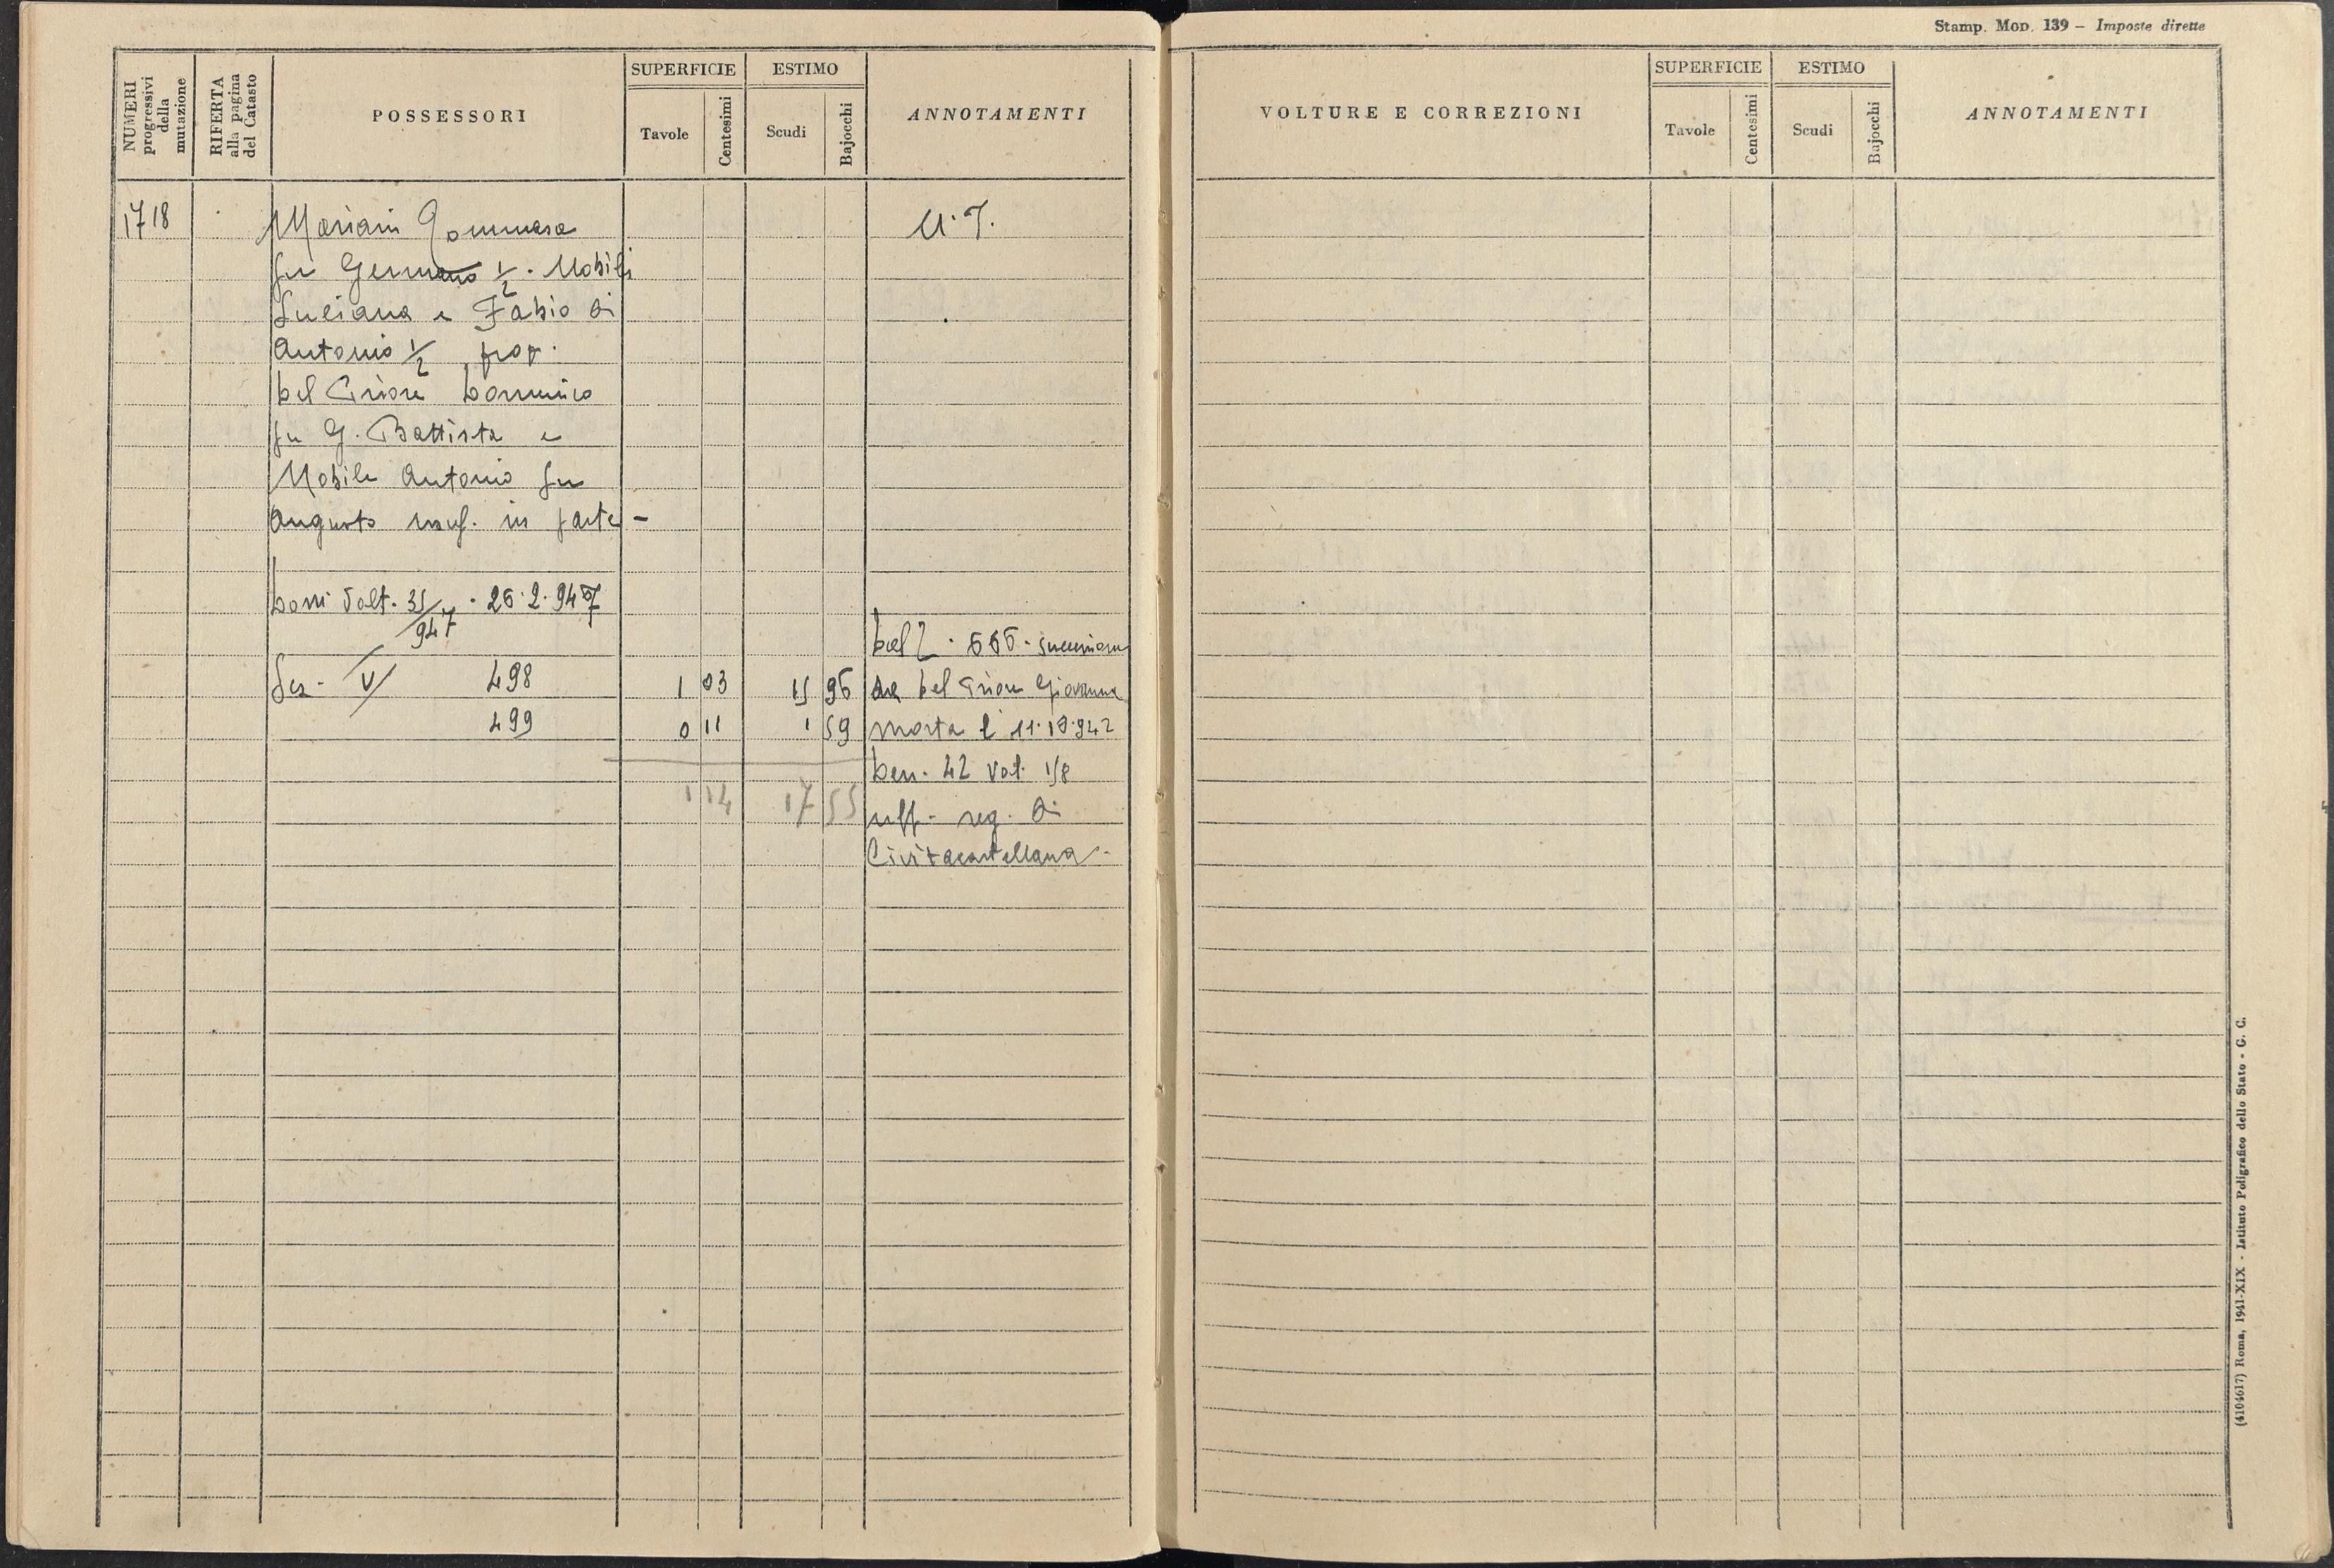 Stamp. Mod. 139 – Imposte dirette
NUMERI progressivi della mutazione
RIFERTA alla pagina del Catasto
POSSESSORI
SUPERFICIE
Tavole
Centesimi
ESTIMO
Scudi
Bajocchi
ANNOTAMENTI
VOLTURE E CORREZIONI
SUPERFICIE
Tavole
Centesimi
ESTIMO
Scudi
Bajocchi
ANNOTAMENTI
1718 Mariani Tommasa U.T.
fu Germano 1/2 . Nobili
Luciana e Fabio di
Antonio 1/2 prop.
Del Priore Domenico
fu G. Battista e
Nobile Antonio fu
Augusto usuf. in parte –
Dom Volt. 35/947 . 26.2.947
Dal 2 . 565 . successione
Sez. V 498 1 03 15 96 da Del Priore Giovanna
499 0 11 1 59 morta l' 11.10.942
Den. 42 Vol. 158
1 14 17 55
uff. reg. di
Civitacastellana.
(4104617) Roma, 1941-XIX - Istituto Poligrafico dello Stato - G. C.